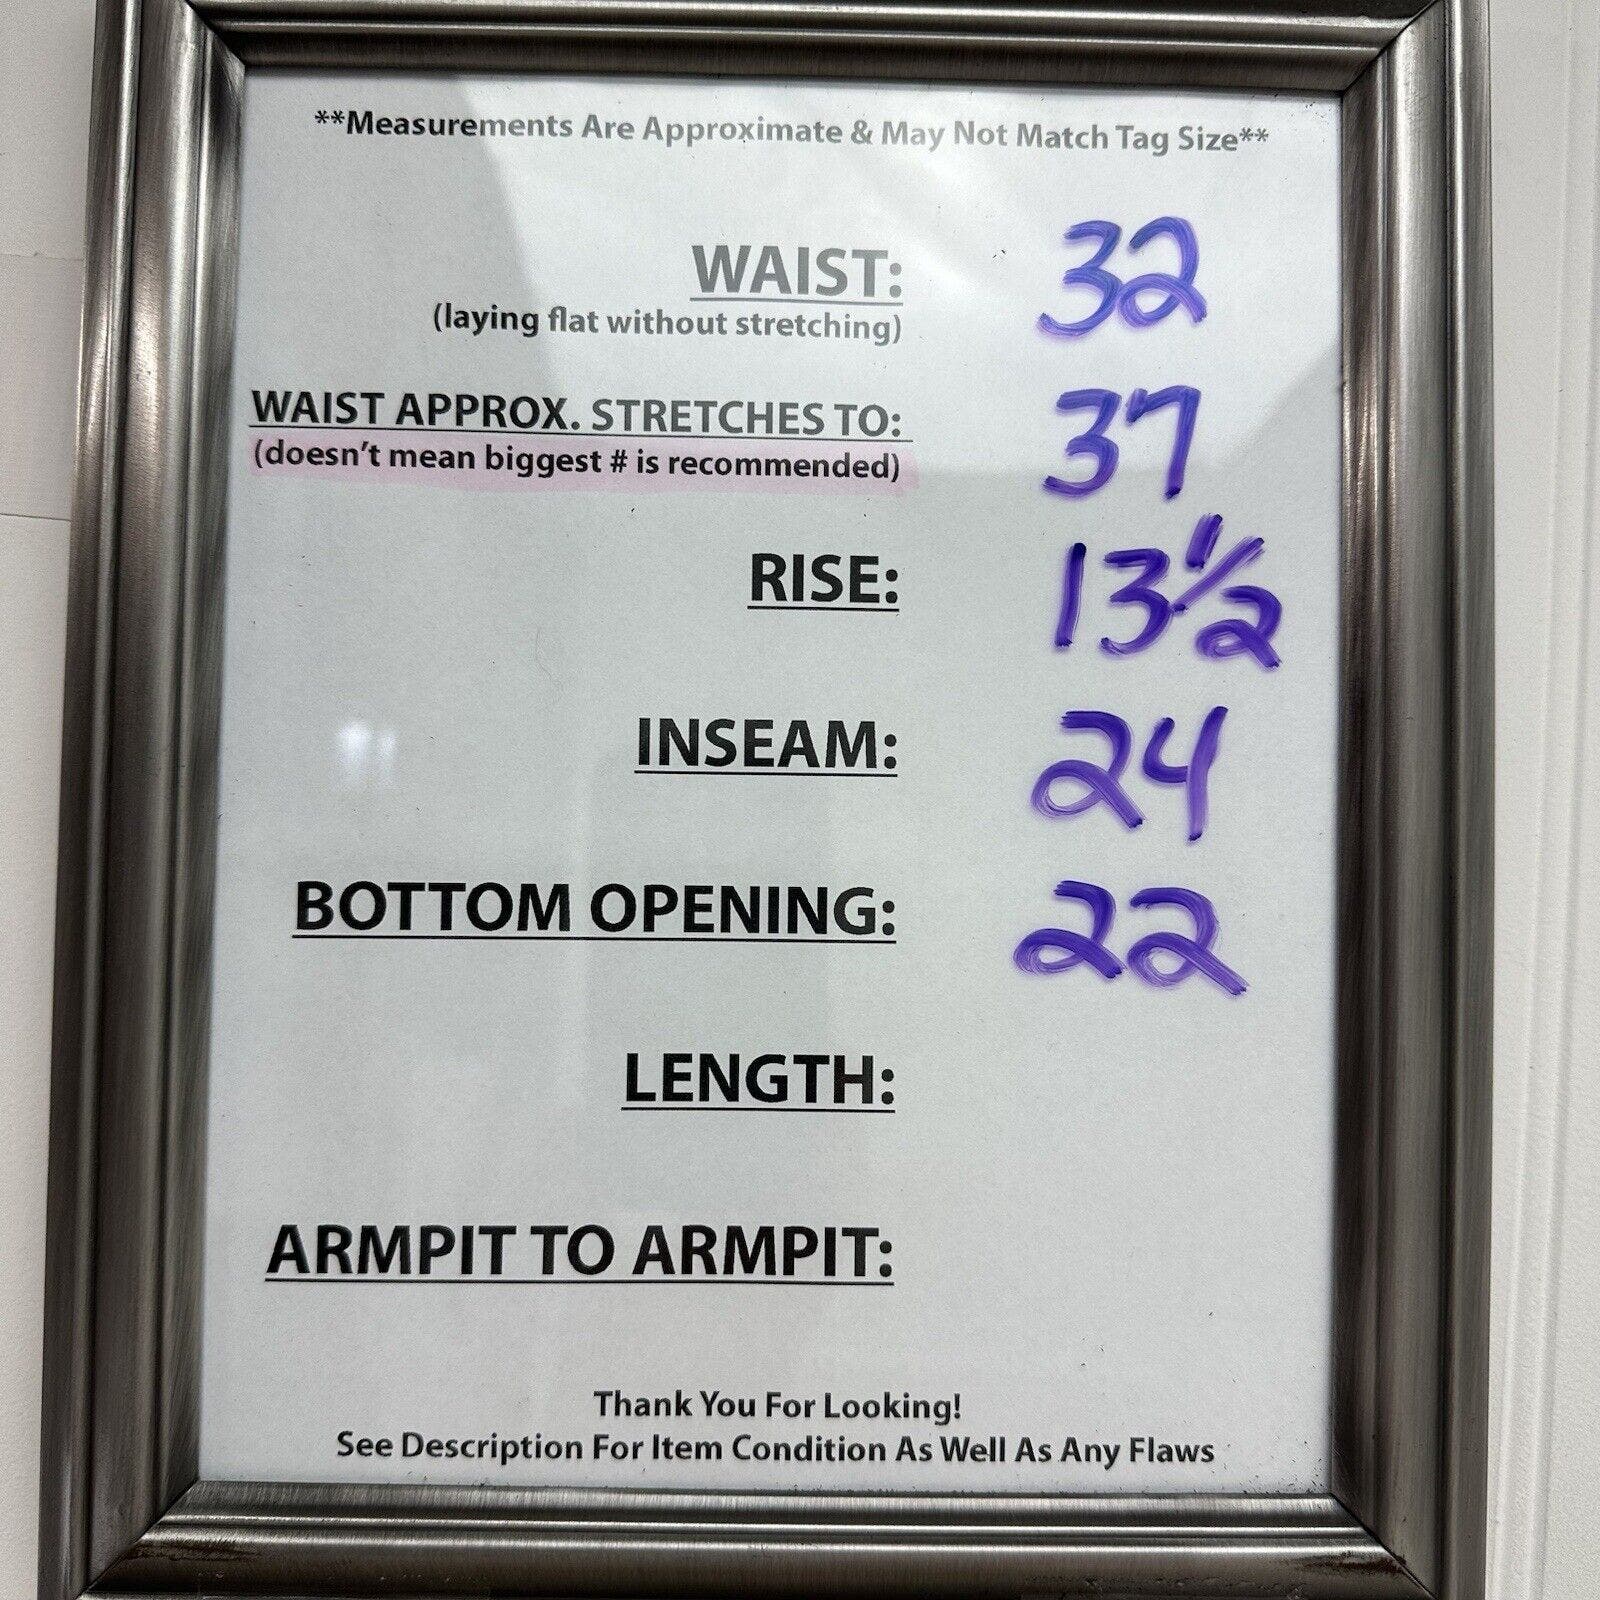 **Measurements Are Approximate & May Not Match Tag Size**
WAIST: 32
(laying flat without stretching)
WAIST APPROX. STRETCHES TO: 37
(doesn't mean biggest # is recommended)
RISE: 13 1/2
INSEAM: 24
BOTTOM OPENING: 22
LENGTH:
ARMPIT TO ARMPIT:
Thank You For Looking!
See Description For Item Condition As Well As Any Flaws